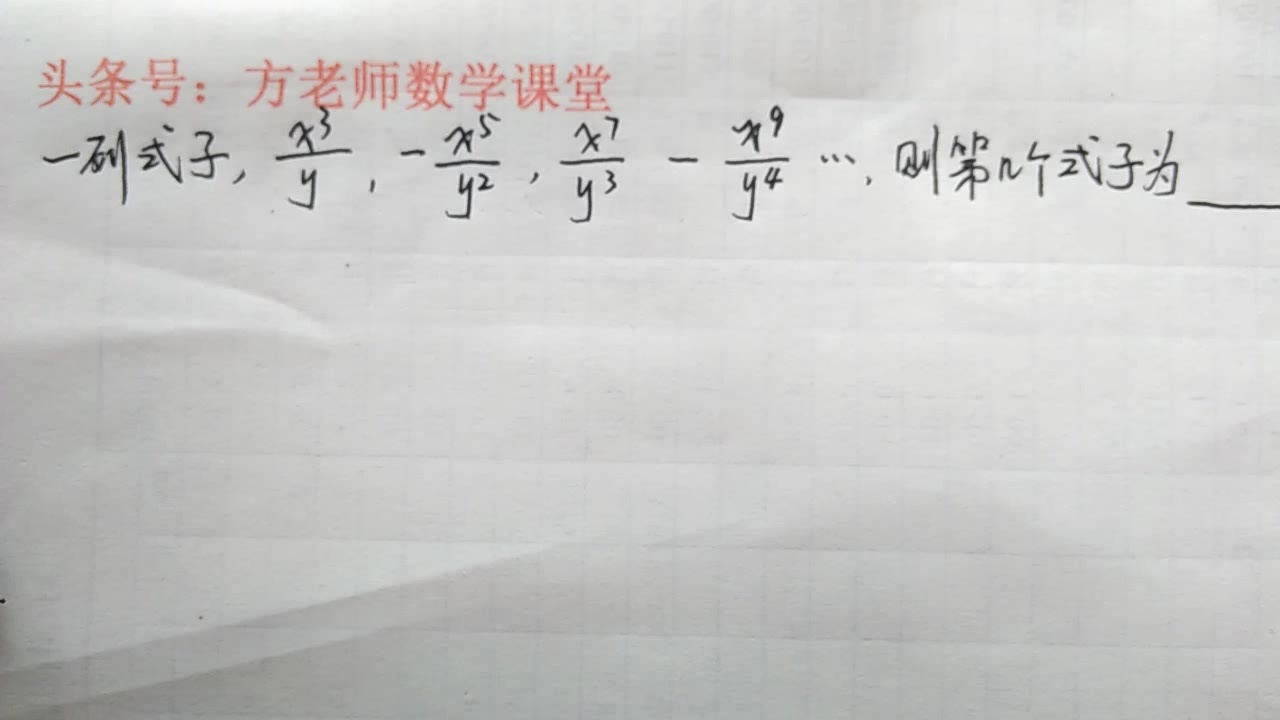 头条号：方老师数学课堂
一列式子, x³/y, -x⁵/y², x⁷/y³ -x⁹/y⁴ …, 则第n个式子为____